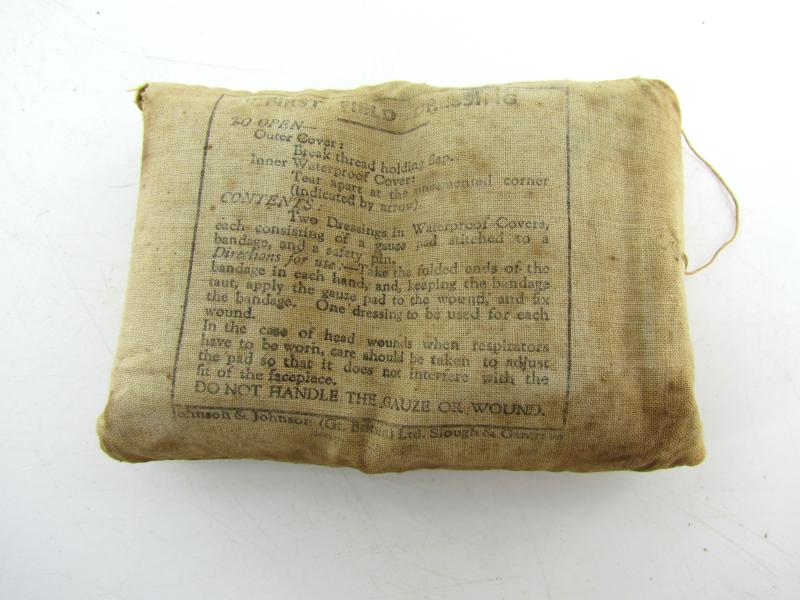 FIRST FIELD DRESSING
TO OPEN—
Outer Cover:
Break thread holding flap.
Inner Waterproof Cover:
Tear apart at the uncemented corner
(Indicated by arrow).
CONTENTS.
Two Dressings in Waterproof Covers,
each consisting of a gauze pad stitched to a
bandage, and a safety pin.
Directions for use:—Take the folded ends of the
bandage in each hand, and, keeping the bandage
taut, apply the gauze pad to the wound, and fix
the bandage. One dressing to be used for each
wound.
In the case of head wounds when respirators
have to be worn, care should be taken to adjust
the pad so that it does not interfere with the
fit of the facepiece.
DO NOT HANDLE THE GAUZE OR WOUND.
Johnson & Johnson (Gt. Britain) Ltd. Slough & Gargrave